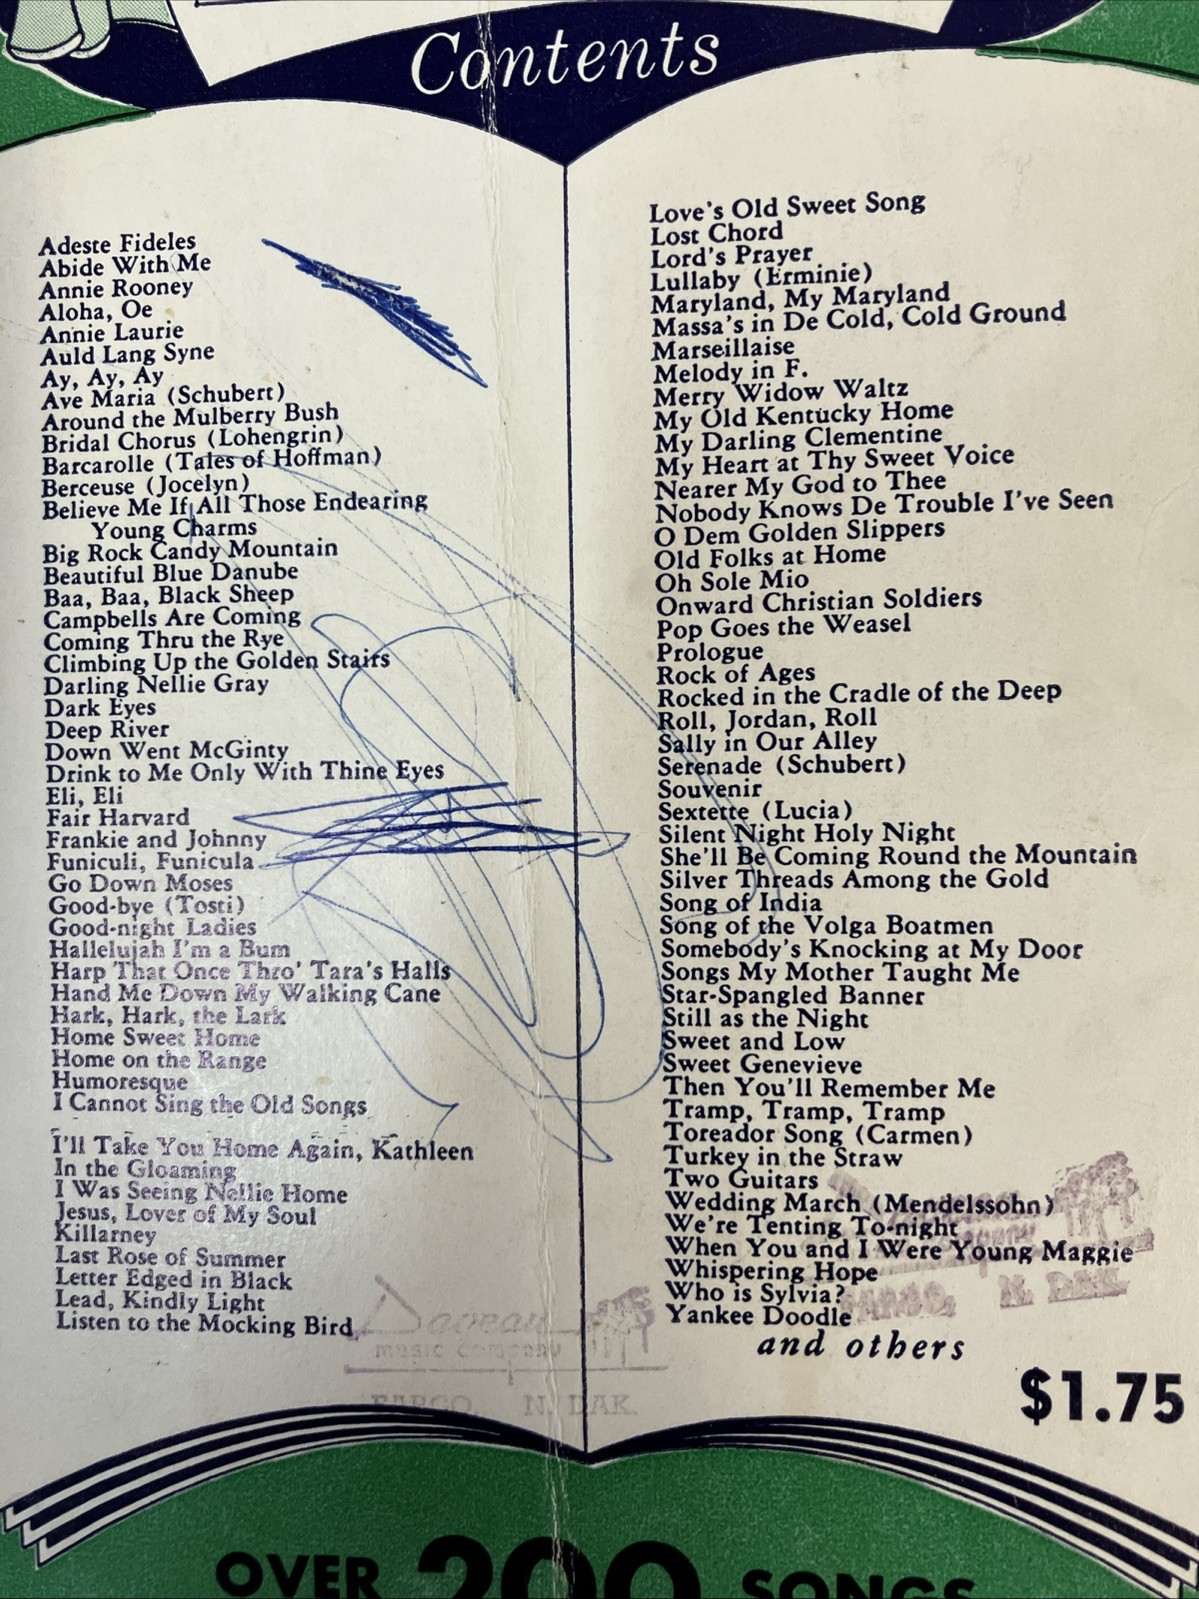 Contents
Adeste Fideles
Abide With Me
Annie Rooney
Aloha, Oe
Annie Laurie
Auld Lang Syne
Ay, Ay, Ay
Ave Maria (Schubert)
Around the Mulberry Bush
Bridal Chorus (Lohengrin)
Barcarolle (Tales of Hoffman)
Berceuse (Jocelyn)
Believe Me If All Those Endearing
Young Charms
Big Rock Candy Mountain
Beautiful Blue Danube
Baa, Baa, Black Sheep
Campbells Are Coming
Coming Thru the Rye
Climbing Up the Golden Stairs
Darling Nellie Gray
Dark Eyes
Deep River
Down Went McGinty
Drink to Me Only With Thine Eyes
Eli, Eli
Fair Harvard
Frankie and Johnny
Funiculi, Funicula
Go Down Moses
Good-bye (Tosti)
Good-night Ladies
Hallelujah I'm a Bum
Harp That Once Thro' Tara's Halls
Hand Me Down My Walking Cane
Hark, Hark, the Lark
Home Sweet Home
Home on the Range
Humoresque
I Cannot Sing the Old Songs
I'll Take You Home Again, Kathleen
In the Gloaming
I Was Seeing Nellie Home
Jesus, Lover of My Soul
Killarney
Last Rose of Summer
Letter Edged in Black
Lead, Kindly Light
Listen to the Mocking Bird
Love's Old Sweet Song
Lost Chord
Lord's Prayer
Lullaby (Erminie)
Maryland, My Maryland
Massa's in De Cold, Cold Ground
Marseillaise
Melody in F.
Merry Widow Waltz
My Old Kentucky Home
My Darling Clementine
My Heart at Thy Sweet Voice
Nearer My God to Thee
Nobody Knows De Trouble I've Seen
O Dem Golden Slippers
Old Folks at Home
Oh Sole Mio
Onward Christian Soldiers
Pop Goes the Weasel
Prologue
Rock of Ages
Rocked in the Cradle of the Deep
Roll, Jordan, Roll
Sally in Our Alley
Serenade (Schubert)
Souvenir
Sextette (Lucia)
Silent Night Holy Night
She'll Be Coming Round the Mountain
Silver Threads Among the Gold
Song of India
Song of the Volga Boatmen
Somebody's Knocking at My Door
Songs My Mother Taught Me
Star-Spangled Banner
Still as the Night
Sweet and Low
Sweet Genevieve
Then You'll Remember Me
Tramp, Tramp, Tramp
Toreador Song (Carmen)
Turkey in the Straw
Two Guitars
Wedding March (Mendelssohn)
We're Tenting To-night
When You and I Were Young Maggie
Whispering Hope
Who is Sylvia?
Yankee Doodle
and others
$1.75
Daveau
music company
FARGO, N. DAK.
OVER 200 SONGS